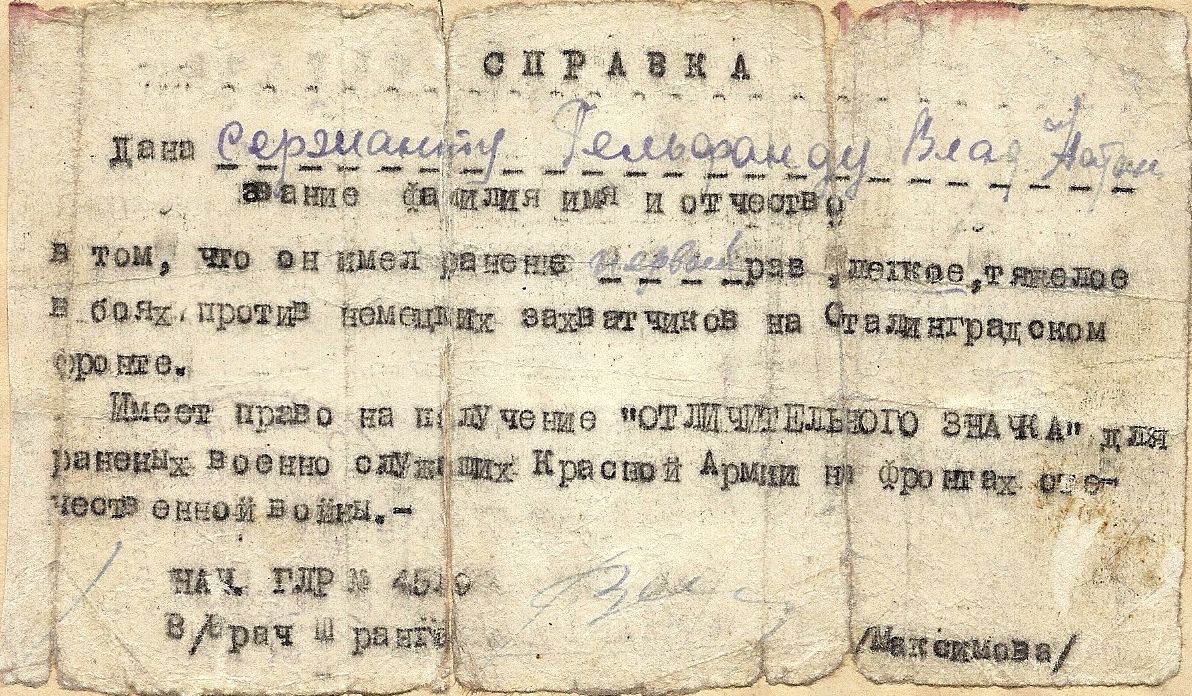 СПРАВКА
Дана Сержанту Гельфанду Влад. Натан
звание фамилия имя и отчество
в том, что он имел ранение первый раз ,легкое,тяжелое
в боях против немецких захватчиков на Сталинградском
фронте.
Имеет право на получение "ОТЛИЧИТЕЛЬНОГО ЗНАЧКА" для
раненых военно служащих Красной Армии на фронтах оте-
чественной войны.-
НАЧ. ГЛР №
В/врач Ш ранга
/Максимова/